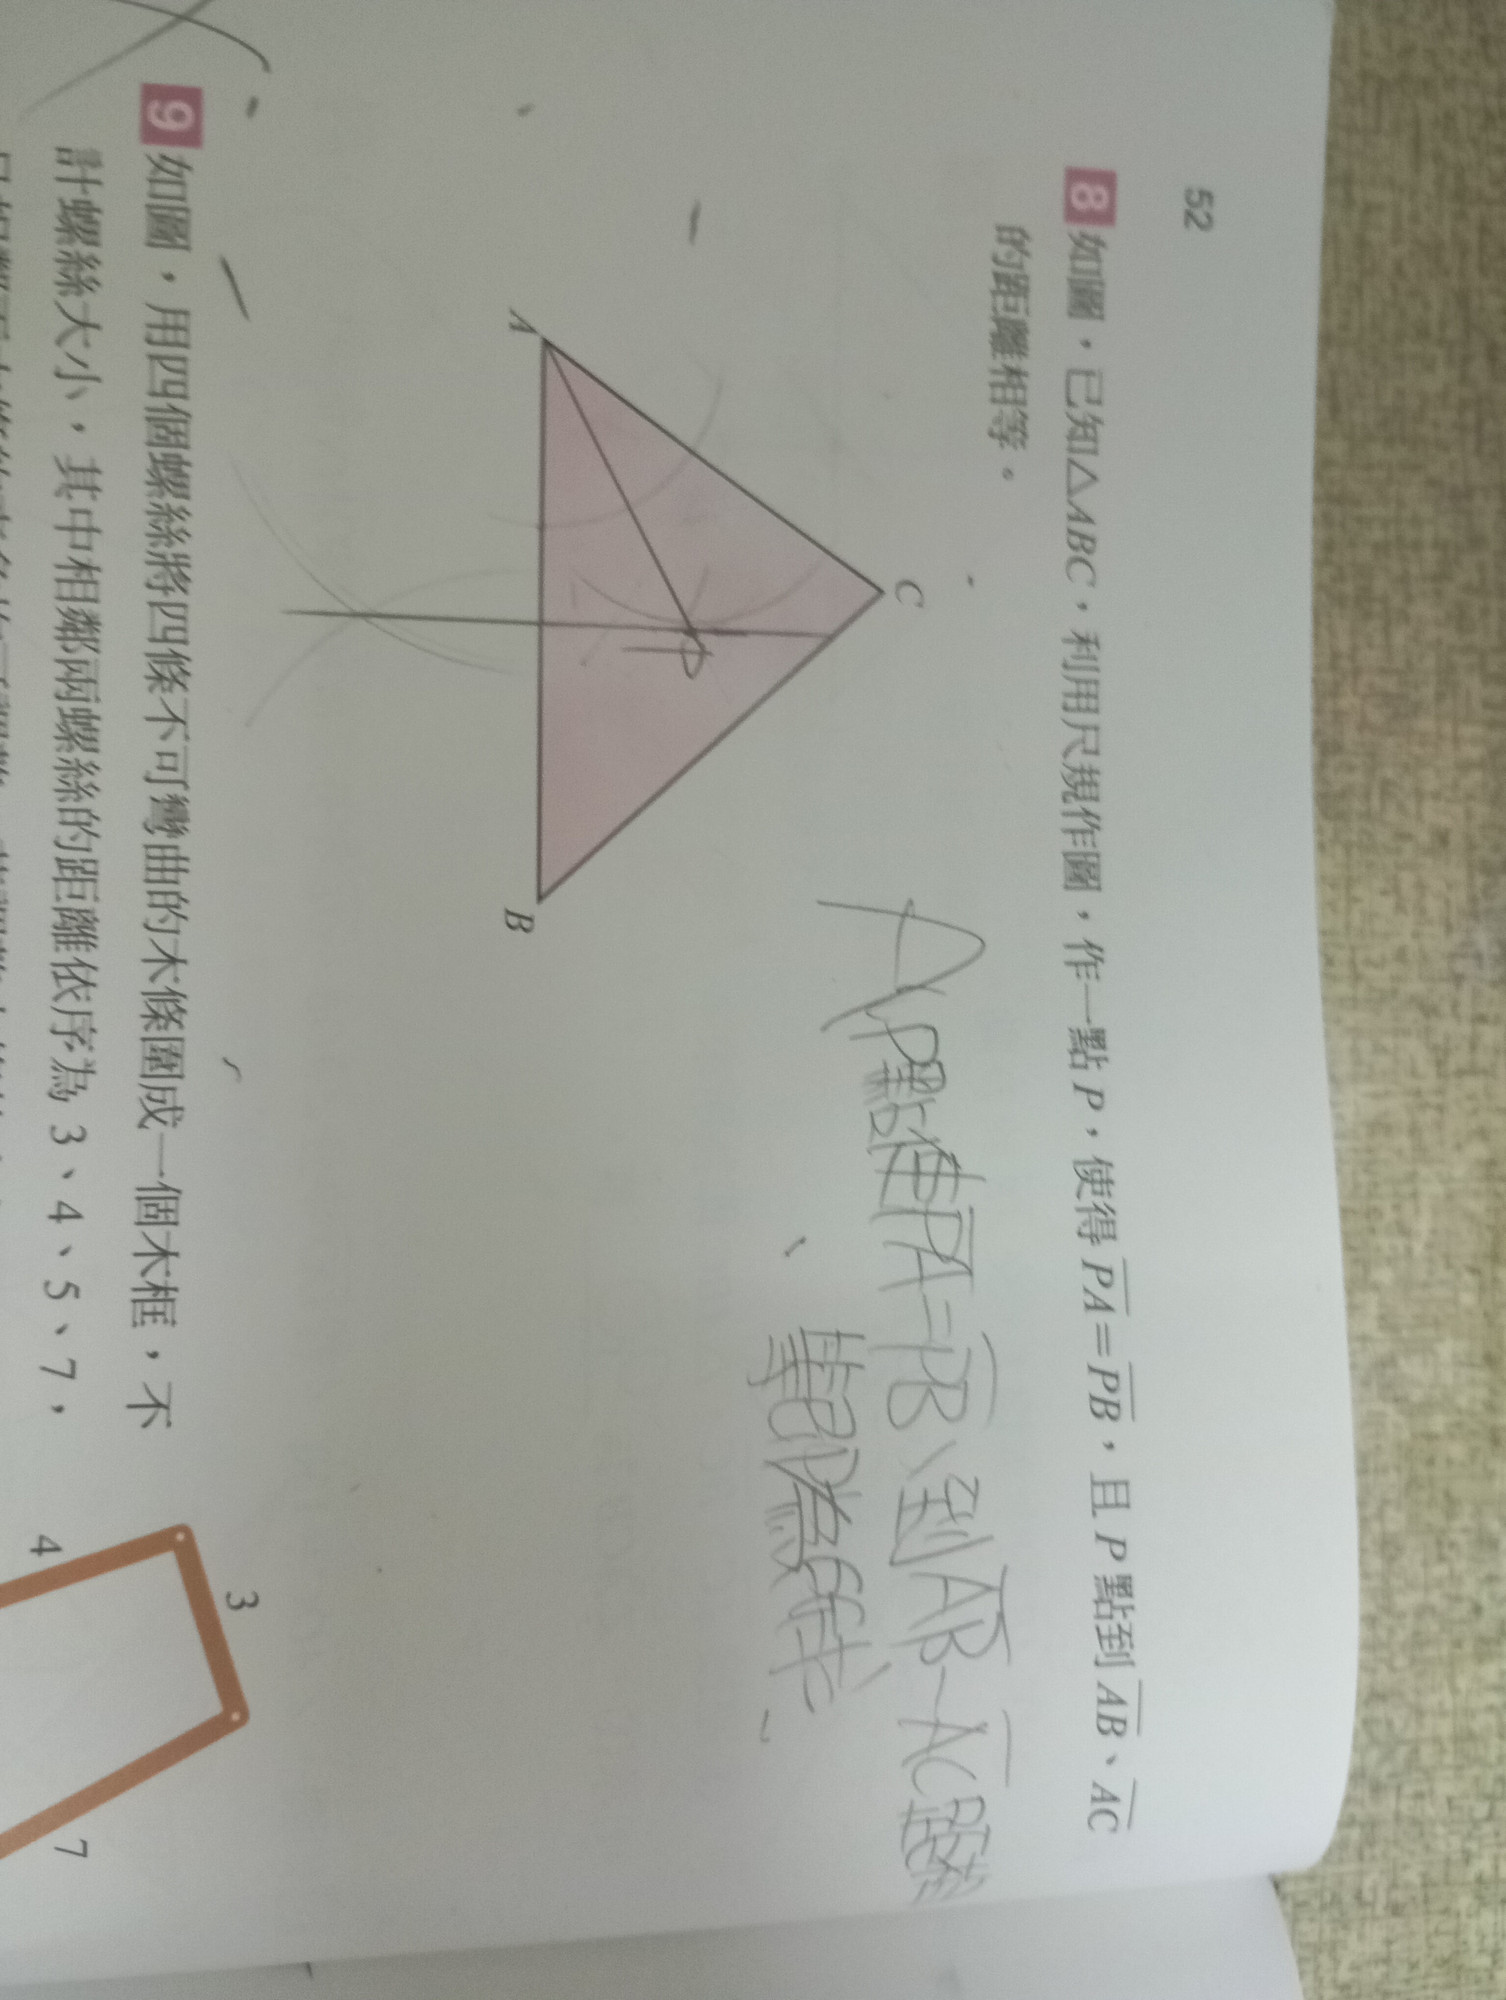 52
8 如圖，已知△ABC，利用尺規作圖，作一點 P，使得 PA＝PB，且 P 點到 AB、AC
的距離相等。
C
A
B
P
A
P點使PA=PB、到AB、AC距
9 如圖，用四個螺絲將四條不可彎曲的木條圍成一個木框，不
計螺絲大小，其中相鄰兩螺絲的距離依序為 3、4、5、7，
3
4
7